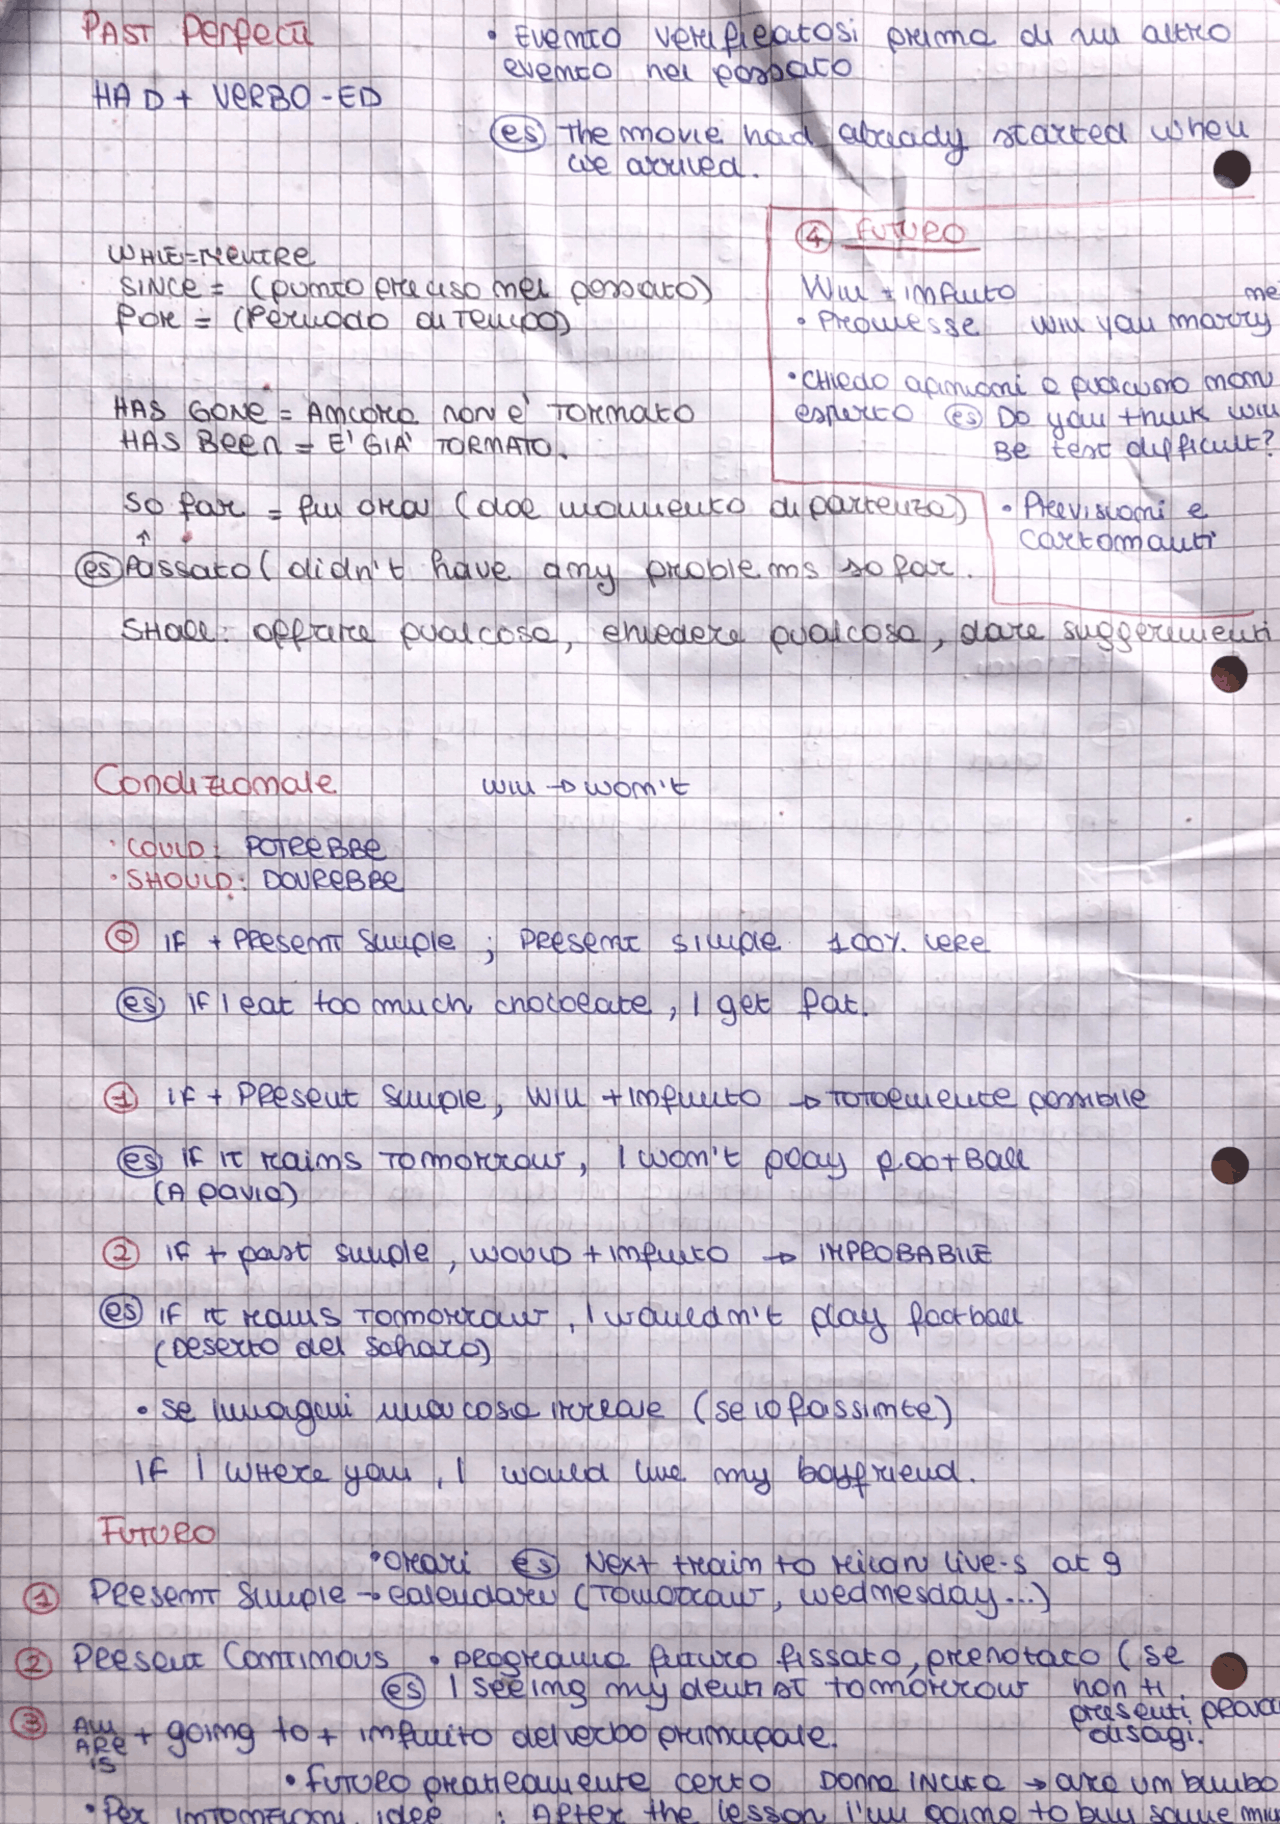 PAST Perfect
• Evento verificatosi prima di un altro
evento nel passato
HAD + VERBO-ED
es The movie had already started when
we arrived.
WHILE=MENTRE
SINCE = (punto preciso nel passato)
FOR = (Periodo di Tempo)
HAS GONE = Ancora non è TORNATO
HAS Been = E' GIA' TORNATO.
④ FUTURO
Will + infinito
• Promesse Will you marry me
• CHiedo opinioni a qualcuno non
esperto es Do you think will
Be test difficult?
• Previsioni e
cartomanti
So far = fin ora (dal momento di partenza)
↑
es Passato ( didn't have any problems so far.
SHALL: offrire qualcosa, chiedere qualcosa, dare suggerimenti
Condizionale will → won't
• COULD: POTREBBE
• SHOULD: DOVREBBE
⓪ IF + PRESENT Simple ; PRESENT simple 100% vere
es IF I eat too much chocolate, I get fat.
① IF + PResent Simple, Will + Infinito → Totalmente possibile
es IF IT rains Tomorrow, I won't play football
(A pavia)
② IF + past simple, WOULD + infinito → IMPROBABILE
es IF it rains Tomorrow, I wouldn't play football
(Deserto del sahara)
• se immagini una cosa irreale (se io fossi in te)
IF I WHere you, I would live my boyfriend.
FUTURO
• Orari es Next train to Milan live-s at 9
① PResent Simple → calendari (Tomorrow, wednesday...)
② PResent Continous • programma futuro fissato, prenotato (se
non ti
presenti
disagi.
es I seeing my dentist tomorrow
③ AM
ARE
IS
+ going to + infinito del verbo principale.
• Futuro praticamente certo Donna incinta → avrà un bimbo
• Per intenzioni, idee : After the lesson I'm going to buy some